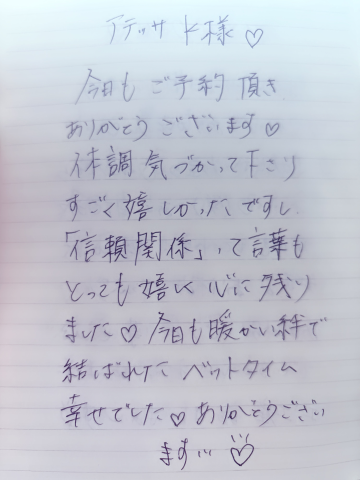 アテッサ K様 ♡
今日も ご予約 頂き
ありがとう ございます♡
体調 気づかって下さり
すごく嬉しかったですし
「信頼関係」って言葉も
とっても 嬉しく心に残り
ました♡ 今日も暖かい絆で
結ばれた ベットタイム
幸せでした♡ ありがとうござい
ます... ♡